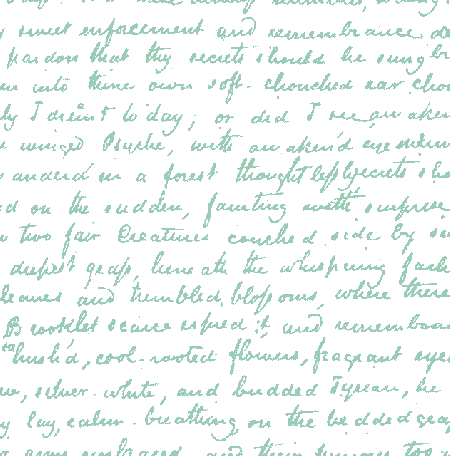 sweet enforcement and remembrance de
pardon that thy secrets should be sung
into thine own soft-chonched ear
ly I dreamt to day; or did I see awaken
winged Psyche, with awaken'd eyes
wander'd in a forest thoughtlessly secrets sho
on the sudden, fainting with surprise
two fair Creatures couched side by si
deepest grass, beneath the whispering
leaves and trembled blossoms, where there
Brooklet scarce espied: and remembran
hush'd, cool-rooted flowers, fragrant eye
silver-white, and budded Tyrian, he
lay, calm-breathing on the bedded gra
arms embraced and their pinions too